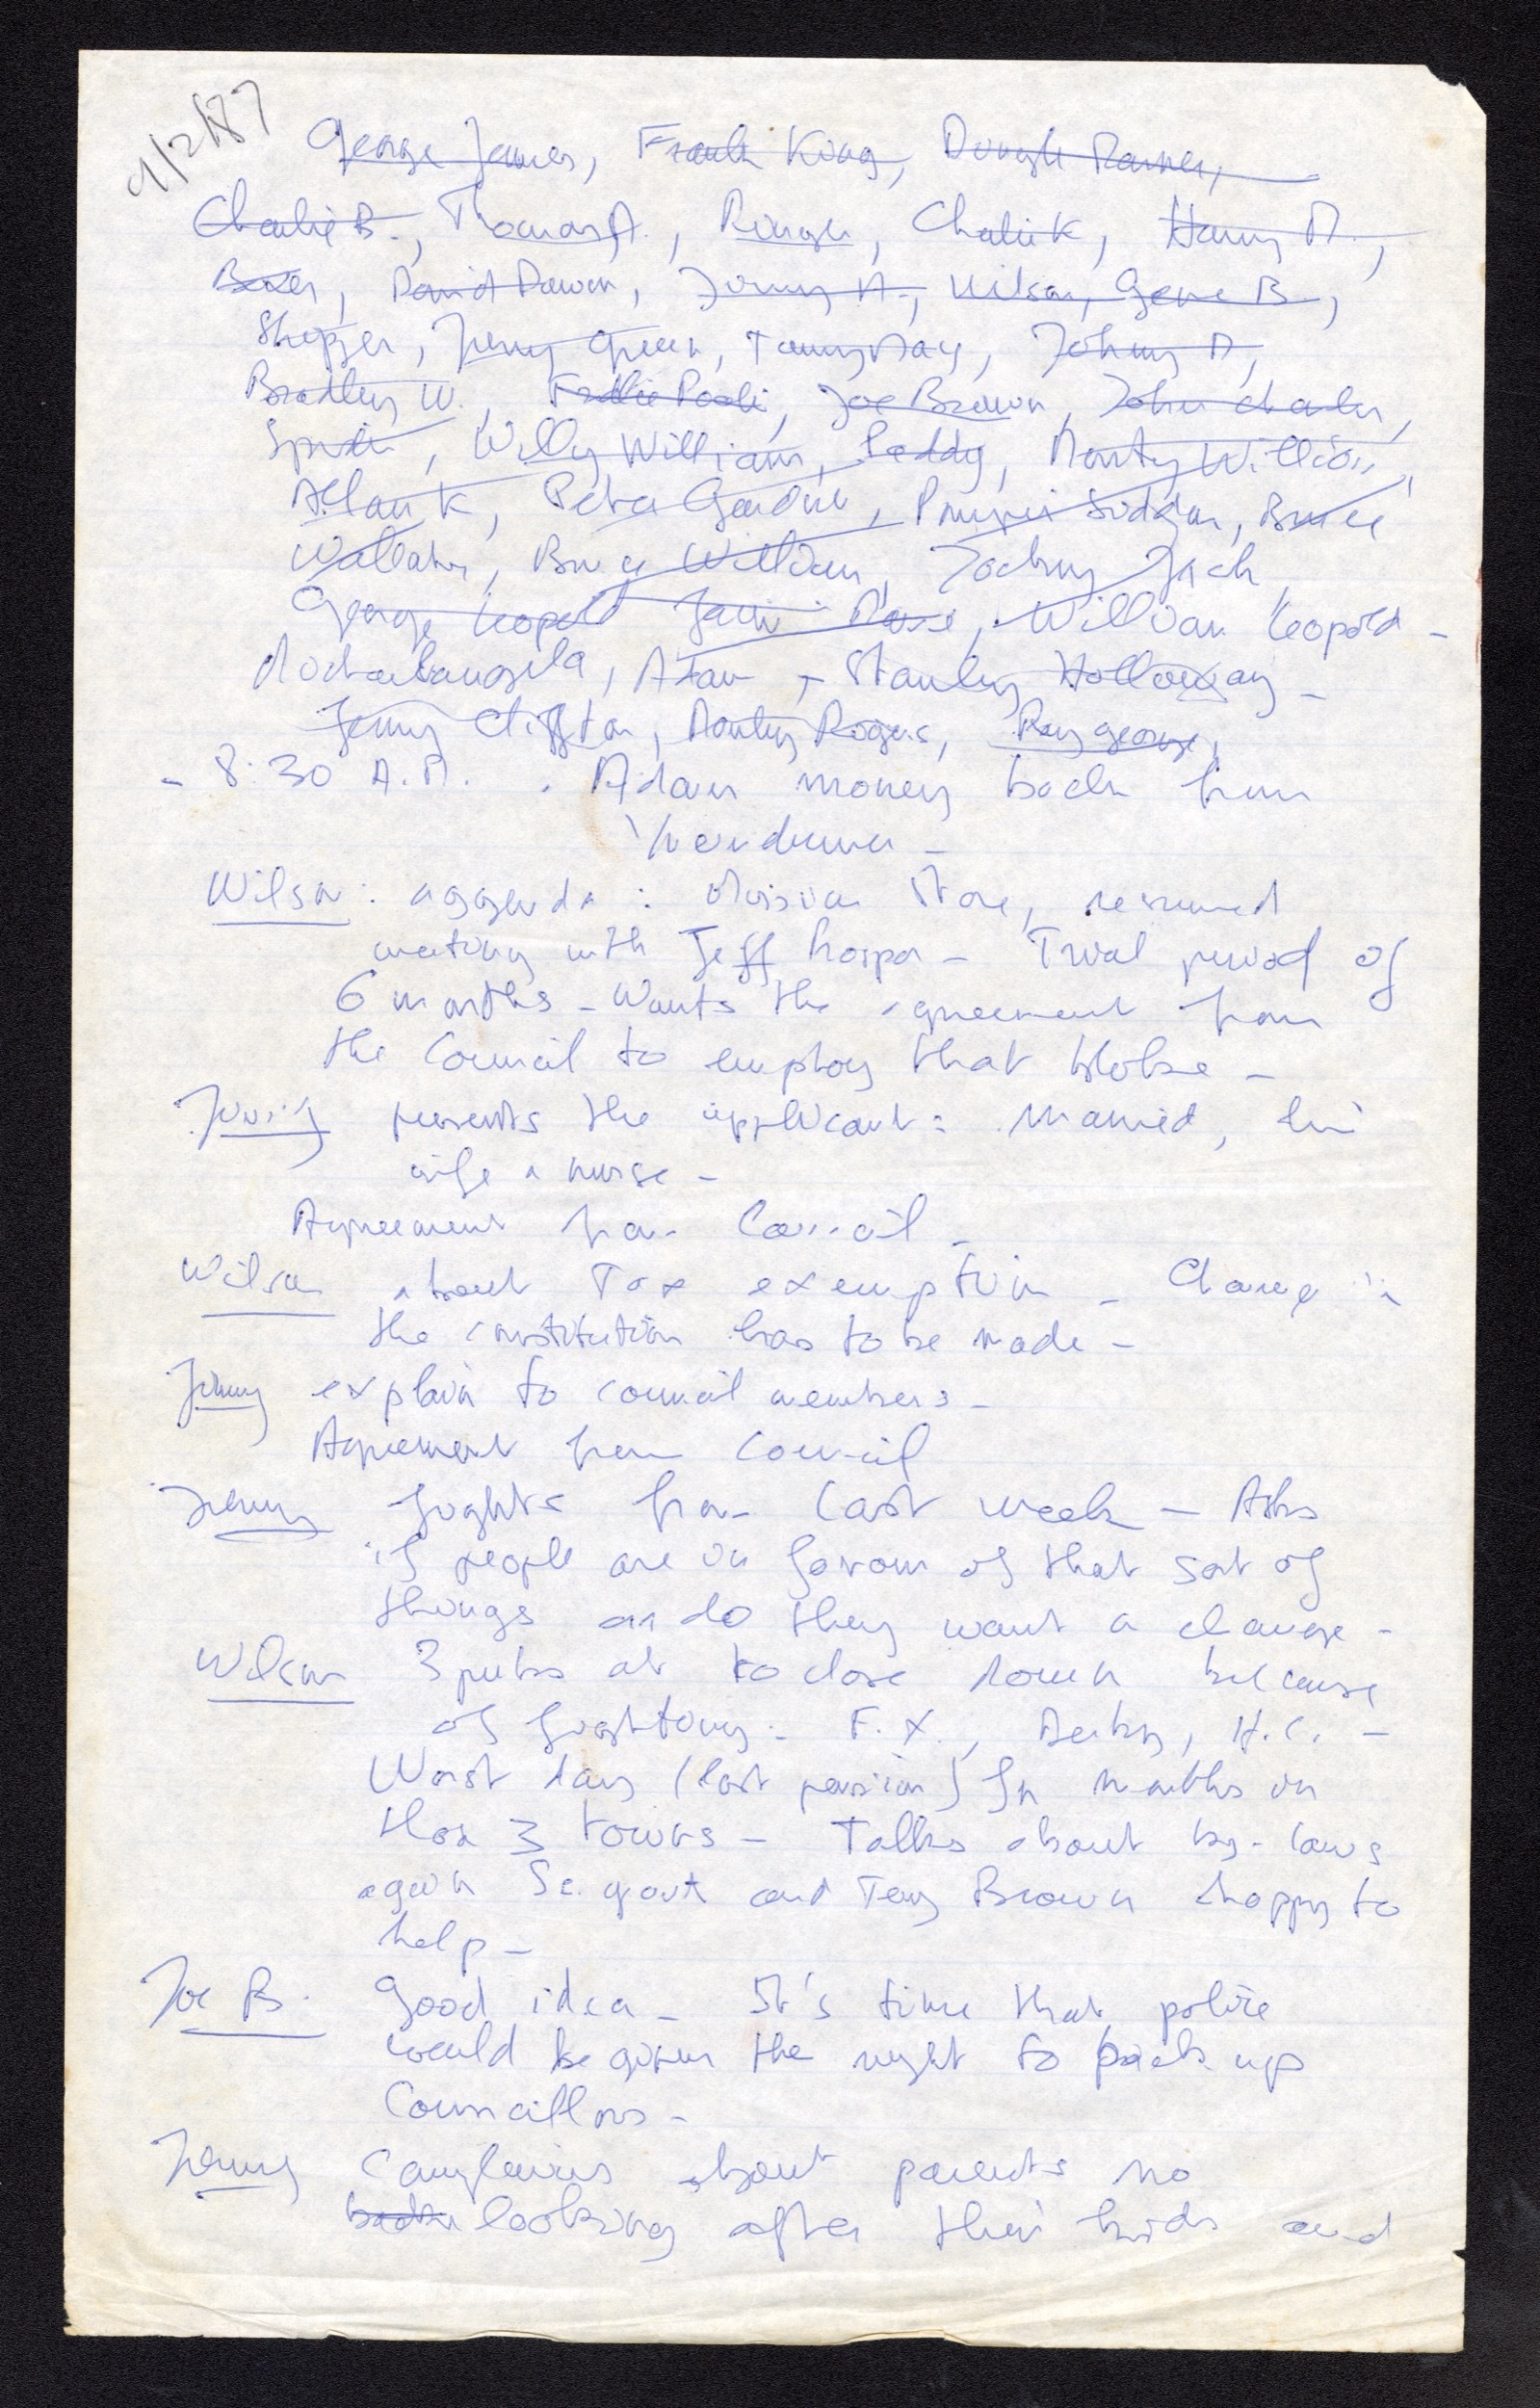 9/2/87
George James, Frank King,
Charlie B., Thomas A., Charlie K, Harry M.,
David Dawn, Jimmy A., Wilson, Gene B,
Jimmy Green, Tommy May, Johnny D,
Bradley W., Joe Brown, John Charles,
Willy William, Paddy, Monty William,
Allan K, Peter
Bruce William, Jack
George Leopold William Leopold -
Alan, - Stanley Holloway -
Jimmy Clifton, Monty Rogers, Ray George,
- 8:30 A.M. . Adam money back from
Wilson: aggenda : Mission Store, resumed
meeting with Jeff - Trial period of
6 months - Wants the agreement from
the Council to employ that bloke -
Jimmy presents the applicant: Married, his
wife a nurse -
Agreement from Council -
Wilson about Tax exemption - Change in
the constitution has to be made -
Jimmy explain to council members -
Agreement from Council
Jimmy fights from last week - Asks
if people are in favour of that sort of
things or do they want a change -
Wilson 3 pubs at to close down because
of fighting: F.X., Derby, H.C. -
Worst day (last pension) for months in
thos 3 towns - Talks about by-laws
again govt and Tony Brown happy to
help -
Joe B. Good idea - It's time that police
would be given the right to pick up
Councillors -
Jimmy Complains about parents no
back looking after their kids and